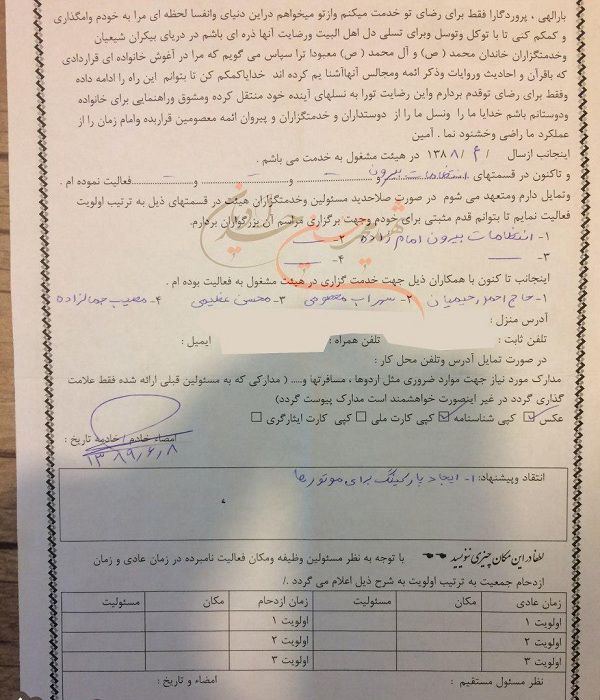 بارالهی ، پروردگارا فقط برای رضای تو خدمت میکنم وازتو میخواهم دراین دنیای وانفسا لحظه ای مرا به خودم وامگذاری
و کمکم کنی تا با توکل وتوسل وبرای تسلی دل اهل البیت ورضایت آنها ذره ای باشم در دریای بیکران شیعیان
وخدمتگزاران خاندان محمد ( ص) و آل محمد ( ص) معبودا ترا سپاس می گویم که مرا در آغوش خانواده ای قراردادی
که باقرآن و احادیث وروایات وذکر ائمه ومجالس آنهاآشنا یم کرده اند خدایاکمکم کن تا بتوانم این راه را ادامه داده
وفقط برای رضای توقدم بردارم واین رضایت تورا به نسلهای آینده خود منتقل کرده ومشوق وراهنمایی برای خانواده
ودوستانم باشم خدایا ما را ونسل ما را از دوستداران و خدمتگزاران و پیروان ائمه معصومین قراربده وامام زمان را از
عملکرد ما راضی وخشنود نما . آمین
اینجانب ازسال / ۴ / ۱۳۸۸ در هیئت مشغول به خدمت می باشم .
و تاکنون در قسمتهای انتظامات بیرون و ـ و ـ و ـ فعالیت نموده ام .
وتمایل دارم ومتعهد می شوم در صورت صلاحدید مسئولین وخدمتگزاران هیئت در قسمتهای ذیل به ترتیب اولویت
فعالیت نمایم تا بتوانم قدم مثبتی برای خودم وجهت برگزاری مراسم آن بزرگواران بردارم.
۱- انتظامات بیرون امام زاده ۲- ـ
۳- ـ ۴- ـ
اینجانب تا کنون با همکاران ذیل جهت خدمت گزاری در هیئت مشغول به فعالیت بوده ام .
۱- حاج احمد رحیمیان ۲- سهراب معصومی ۳- محسن عظیمی ۴- مصیب جمالزاده
آدرس منزل :
تلفن ثابت : تلفن همراه : ایمیل :
در صورت تمایل آدرس وتلفن محل کار :
مدارک مورد نیاز جهت موارد ضروری مثل اردوها ، مسافرتها و..... ( مدارکی که به مسئولین قبلی ارائه شده فقط علامت
گذاری گردد در غیر اینصورت خواهشمند است مدارک پیوست گردد)
عکس ☑ کپی شناسنامه ☑ کپی کارت ملی ☐ کپی کارت ایثارگری ☐
امضاء خادم / خادمه تاریخ :
۱۳۸۹/۶/۸
انتقاد وپیشنهاد: ۱- ایجاد پارکینگ برای موتورها
لطفا در این مکان چیزی ننویسید با توجه به نظر مسئولین وظیفه ومکان فعالیت نامبرده در زمان عادی و زمان
ازدحام جمعیت به ترتیب اولویت به شرح ذیل اعلام می گردد ./
زمان عادی مکان مسئولیت زمان ازدحام مکان مسئولیت
اولویت ۱ اولویت ۱
اولویت ۲ اولویت ۲
اولویت ۳ اولویت ۳
نظر مسئول مستقیم : امضاء و تاریخ :